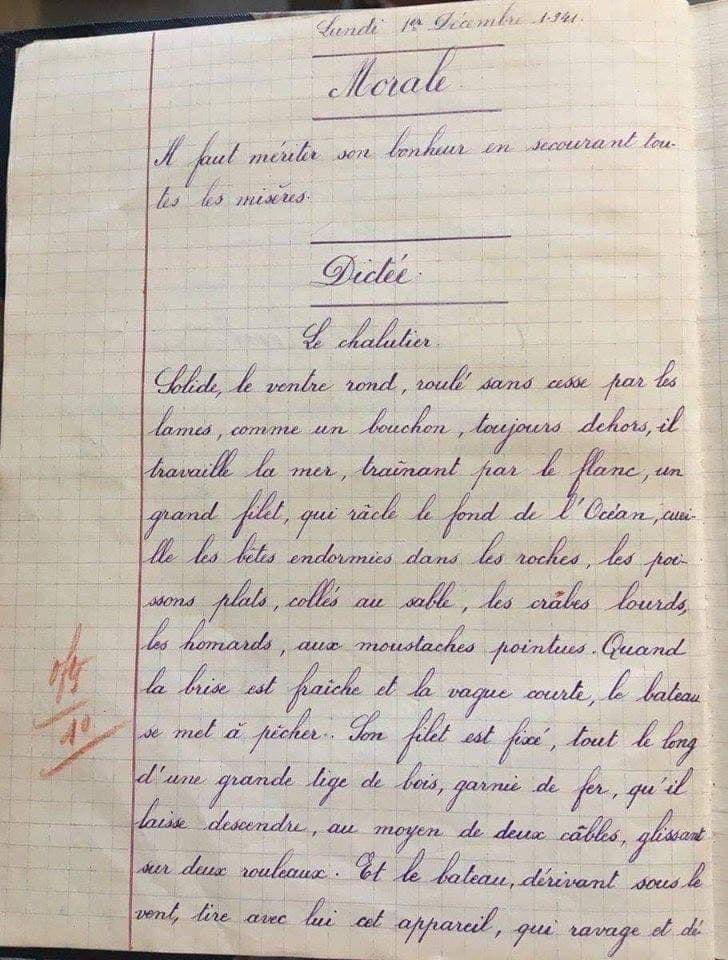 Lundi 1er Décembre 1941.
Morale.
Il faut mériter son bonheur en secourant tou-
tes les misères.
Dictée.
Le chalutier.
Solide, le ventre rond, roulé sans cesse par les
lames, comme un bouchon, toujours dehors, il
travaille la mer, traînant par le flanc, un
grand filet, qui râcle le fond de l'Océan, cuei-
lle les bêtes endormies dans les roches, les poi-
ssons plats, collés au sable, les crâbes lourds,
les homards, aux moustaches pointues. Quand
la brise est fraîche et la vague courte, le bateau
se met à pêcher. Son filet est fixé, tout le long
d'une grande tige de bois, garnie de fer, qu'il
laisse descendre, au moyen de deux câbles, glissant
sur deux rouleaux. Et le bateau, dérivant sous le
vent, tire avec lui cet appareil, qui ravage et dé
10